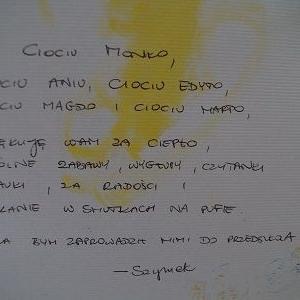 CIOCIU MONIKO,
CIU ANIU, CIOCIU EDYTO,
CIU MAGDO I CIOCIU MARTO,
ĘKUJĘ WAM ZA CIEPŁO,
ÓLNE ZABAWY, WYGŁUPY, CZYTANKI
AUKI, ZA RADOŚCI I
KANIE W SMUTKACH NA PUFIE
BYM ZAPROWADZIŁ MIMI DO PRZEDSZKOLA
—Szymek